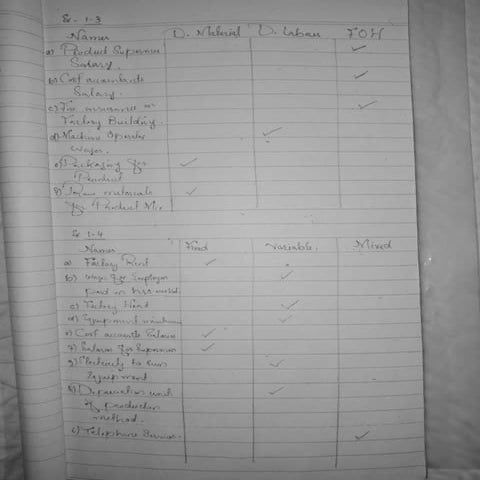 Ex. 1-3
Names D. Material D. Labour FOH
a) Product Supervisor ✓
Salary.
b) Cost accountants ✓
Salary.
c) Fire insurance on ✓
Factory Building.
d) Machine Operator ✓
Wages.
e) Packaging for ✓
Product
f) Raw materials ✓
for Product
Ex 1-4
Names Fixed Variable. Mixed
a) Factory Rent ✓
b) wages for Employees ✓
paid on hrs worked
c) Factory Heat ✓
d) Equipment ✓
e) Cost accounts Salaries ✓
f) Salaries for Supervisor ✓
g) Electricity to run ✓
Equipment
h) Depreciation unit ✓
of production
method.
i) Telephone Services. ✓